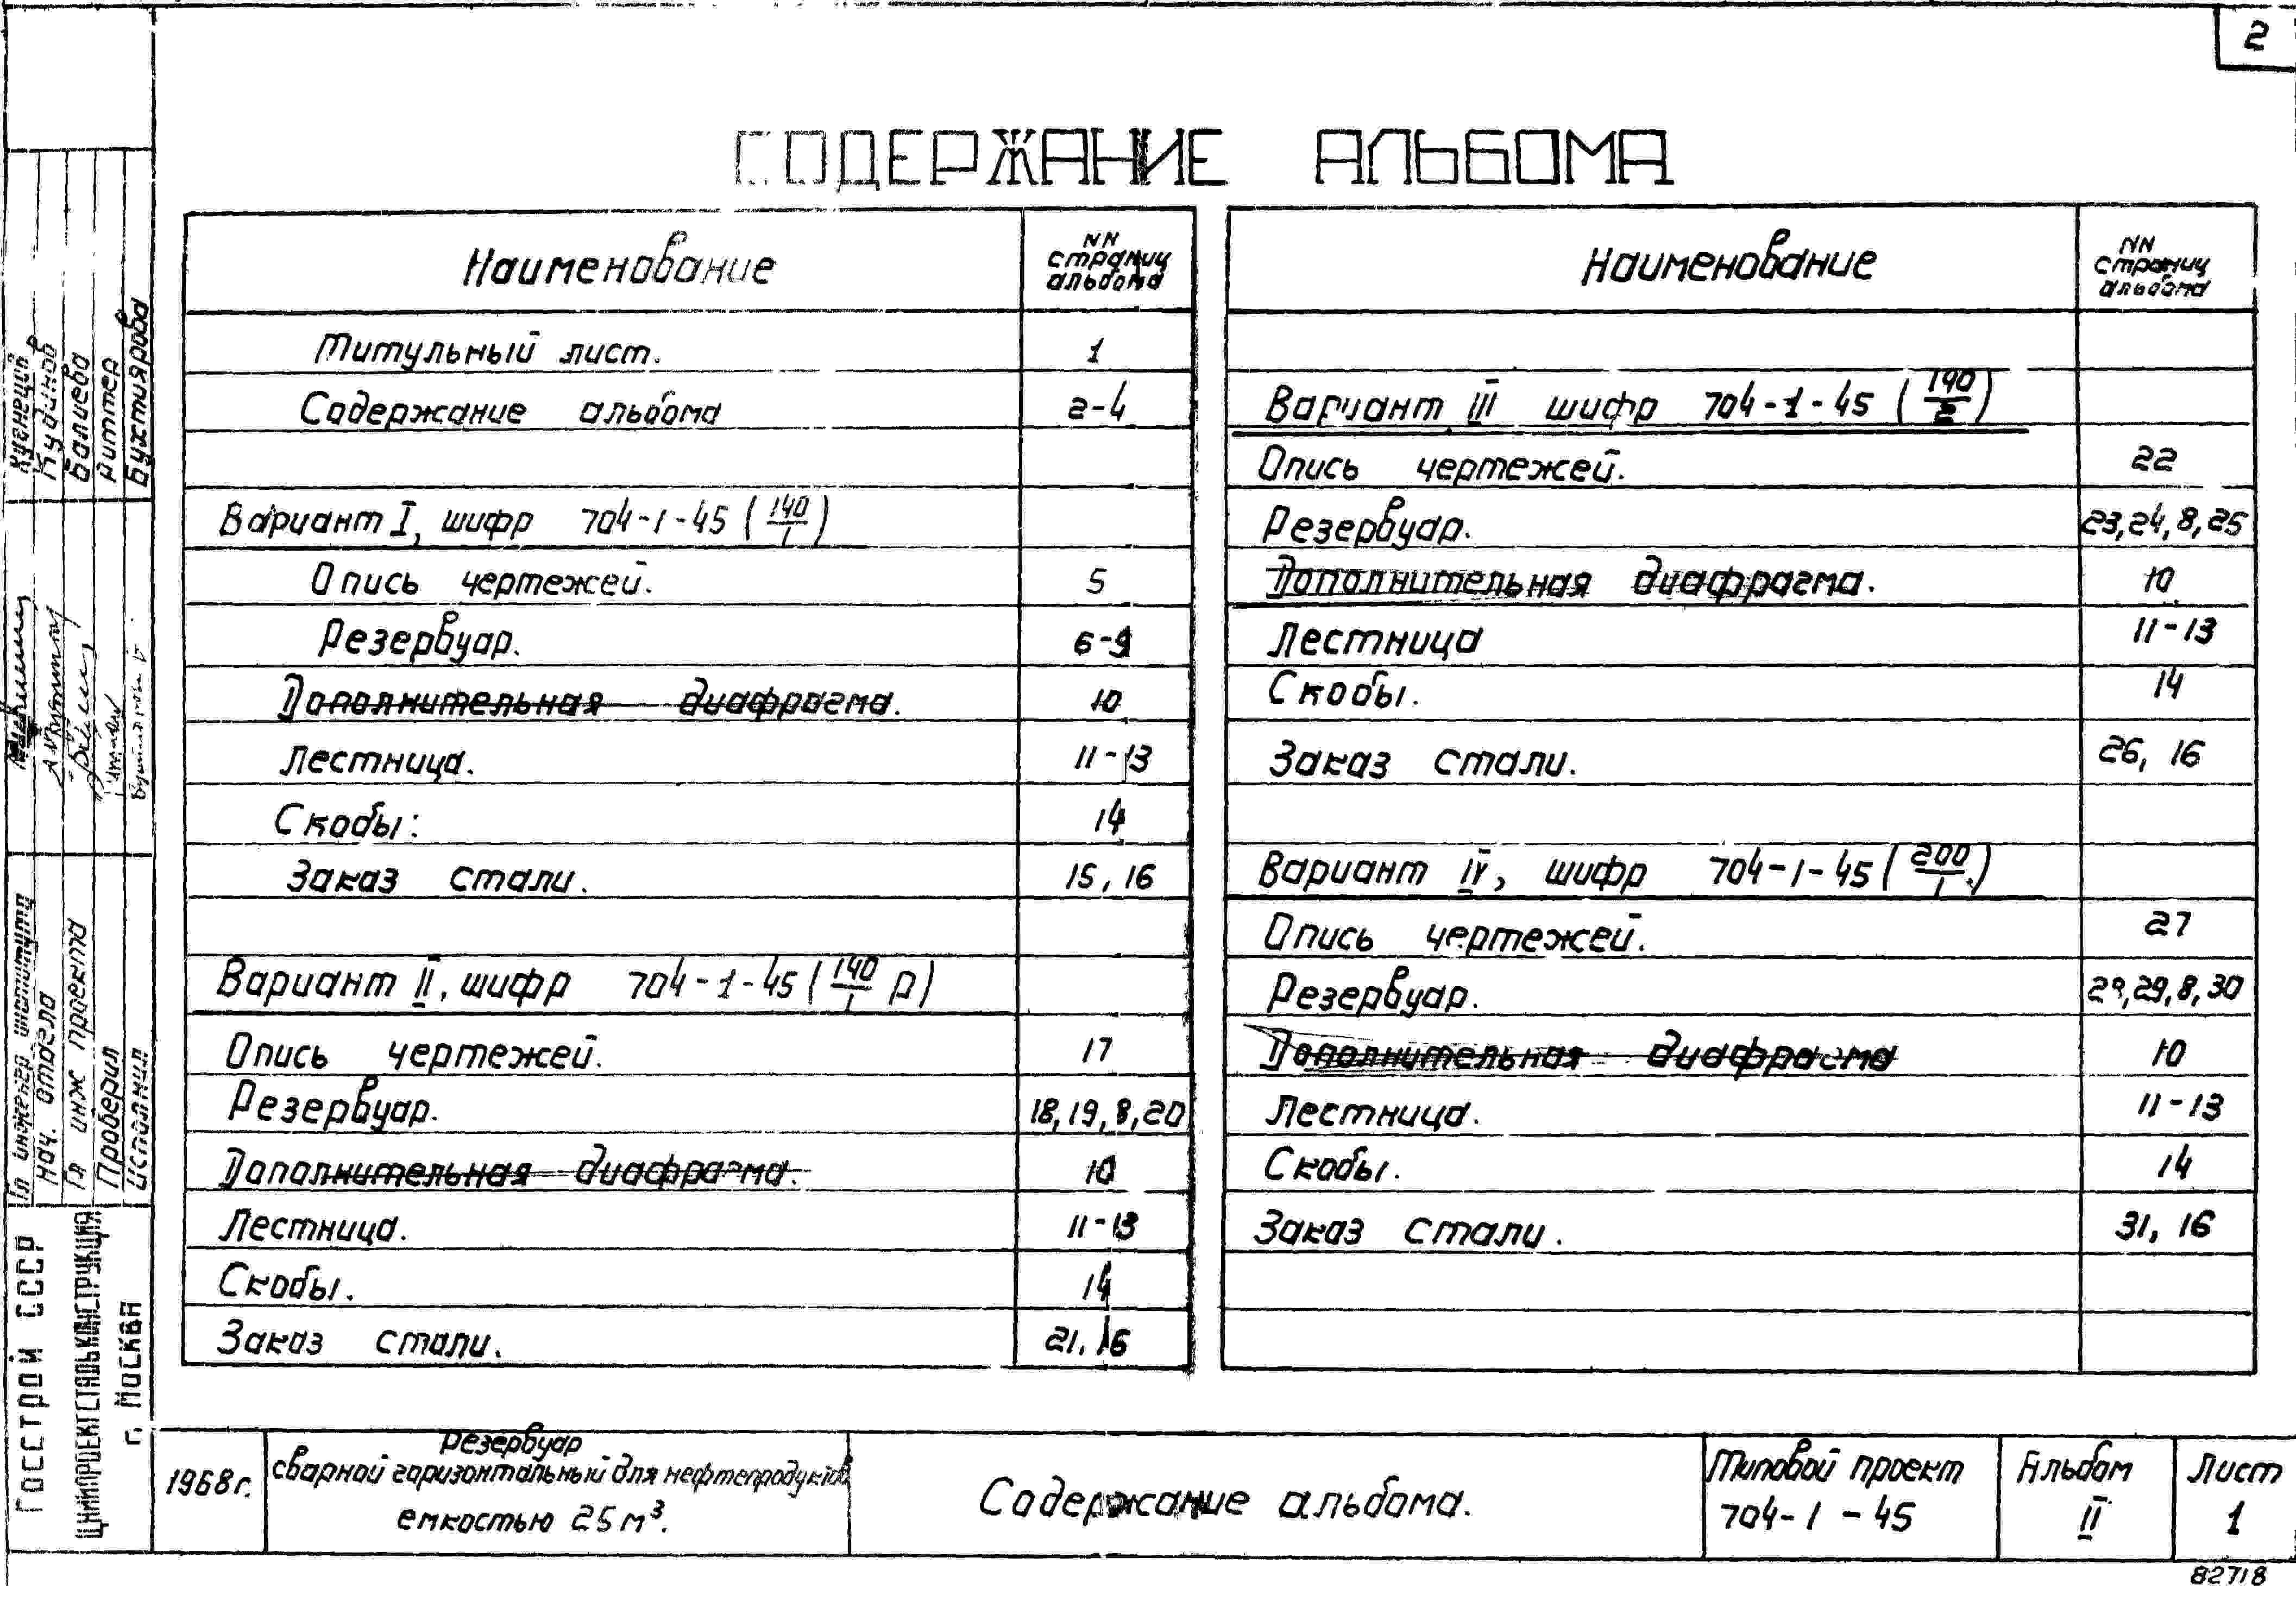 2
СОДЕРЖАНИЕ АЛЬБОМА
Наименование
NN страниц альбома
Титульный лист. 1
Содержание альбома 2-4
Вариант I, шифр 704-1-45 (140/1)
Опись чертежей. 5
Резервуар. 6-9
Дополнительная диафрагма. 10
Лестница. 11-13
Скобы: 14
Заказ стали. 15, 16
Вариант II, шифр 704-1-45 (140/1 р)
Опись чертежей. 17
Резервуар. 18, 19, 8, 20
Дополнительная диафрагма. 10
Лестница. 11-13
Скобы. 14
Заказ стали. 21, 16
Наименование
NN страниц альбома
Вариант III шифр 704-1-45 (190/2)
Опись чертежей. 22
Резервуар. 23, 24, 8, 25
Дополнительная диафрагма. 10
Лестница 11-13
Скобы. 14
Заказ стали. 26, 16
Вариант IV, шифр 704-1-45 (200/1)
Опись чертежей. 27
Резервуар. 28, 29, 8, 30
Дополнительная диафрагма 10
Лестница. 11-13
Скобы. 14
Заказ стали. 31, 16
Гл инженер института Кузнецов
Нач. отдела Кудинов
Гл инж проекта Валиева
Проверил Риттер
Исполнил Бухтиярова
ГОССТРОЙ СССР
ЦНИИПРОЕКТСТАЛЬКОНСТРУКЦИЯ
г. Москва
1968г.
Резервуар
сварной горизонтальный для нефтепродуктов
емкостью 25 м³.
Содержание альбома.
Типовой проект
704-1-45
Альбом
II
Лист
1
82718